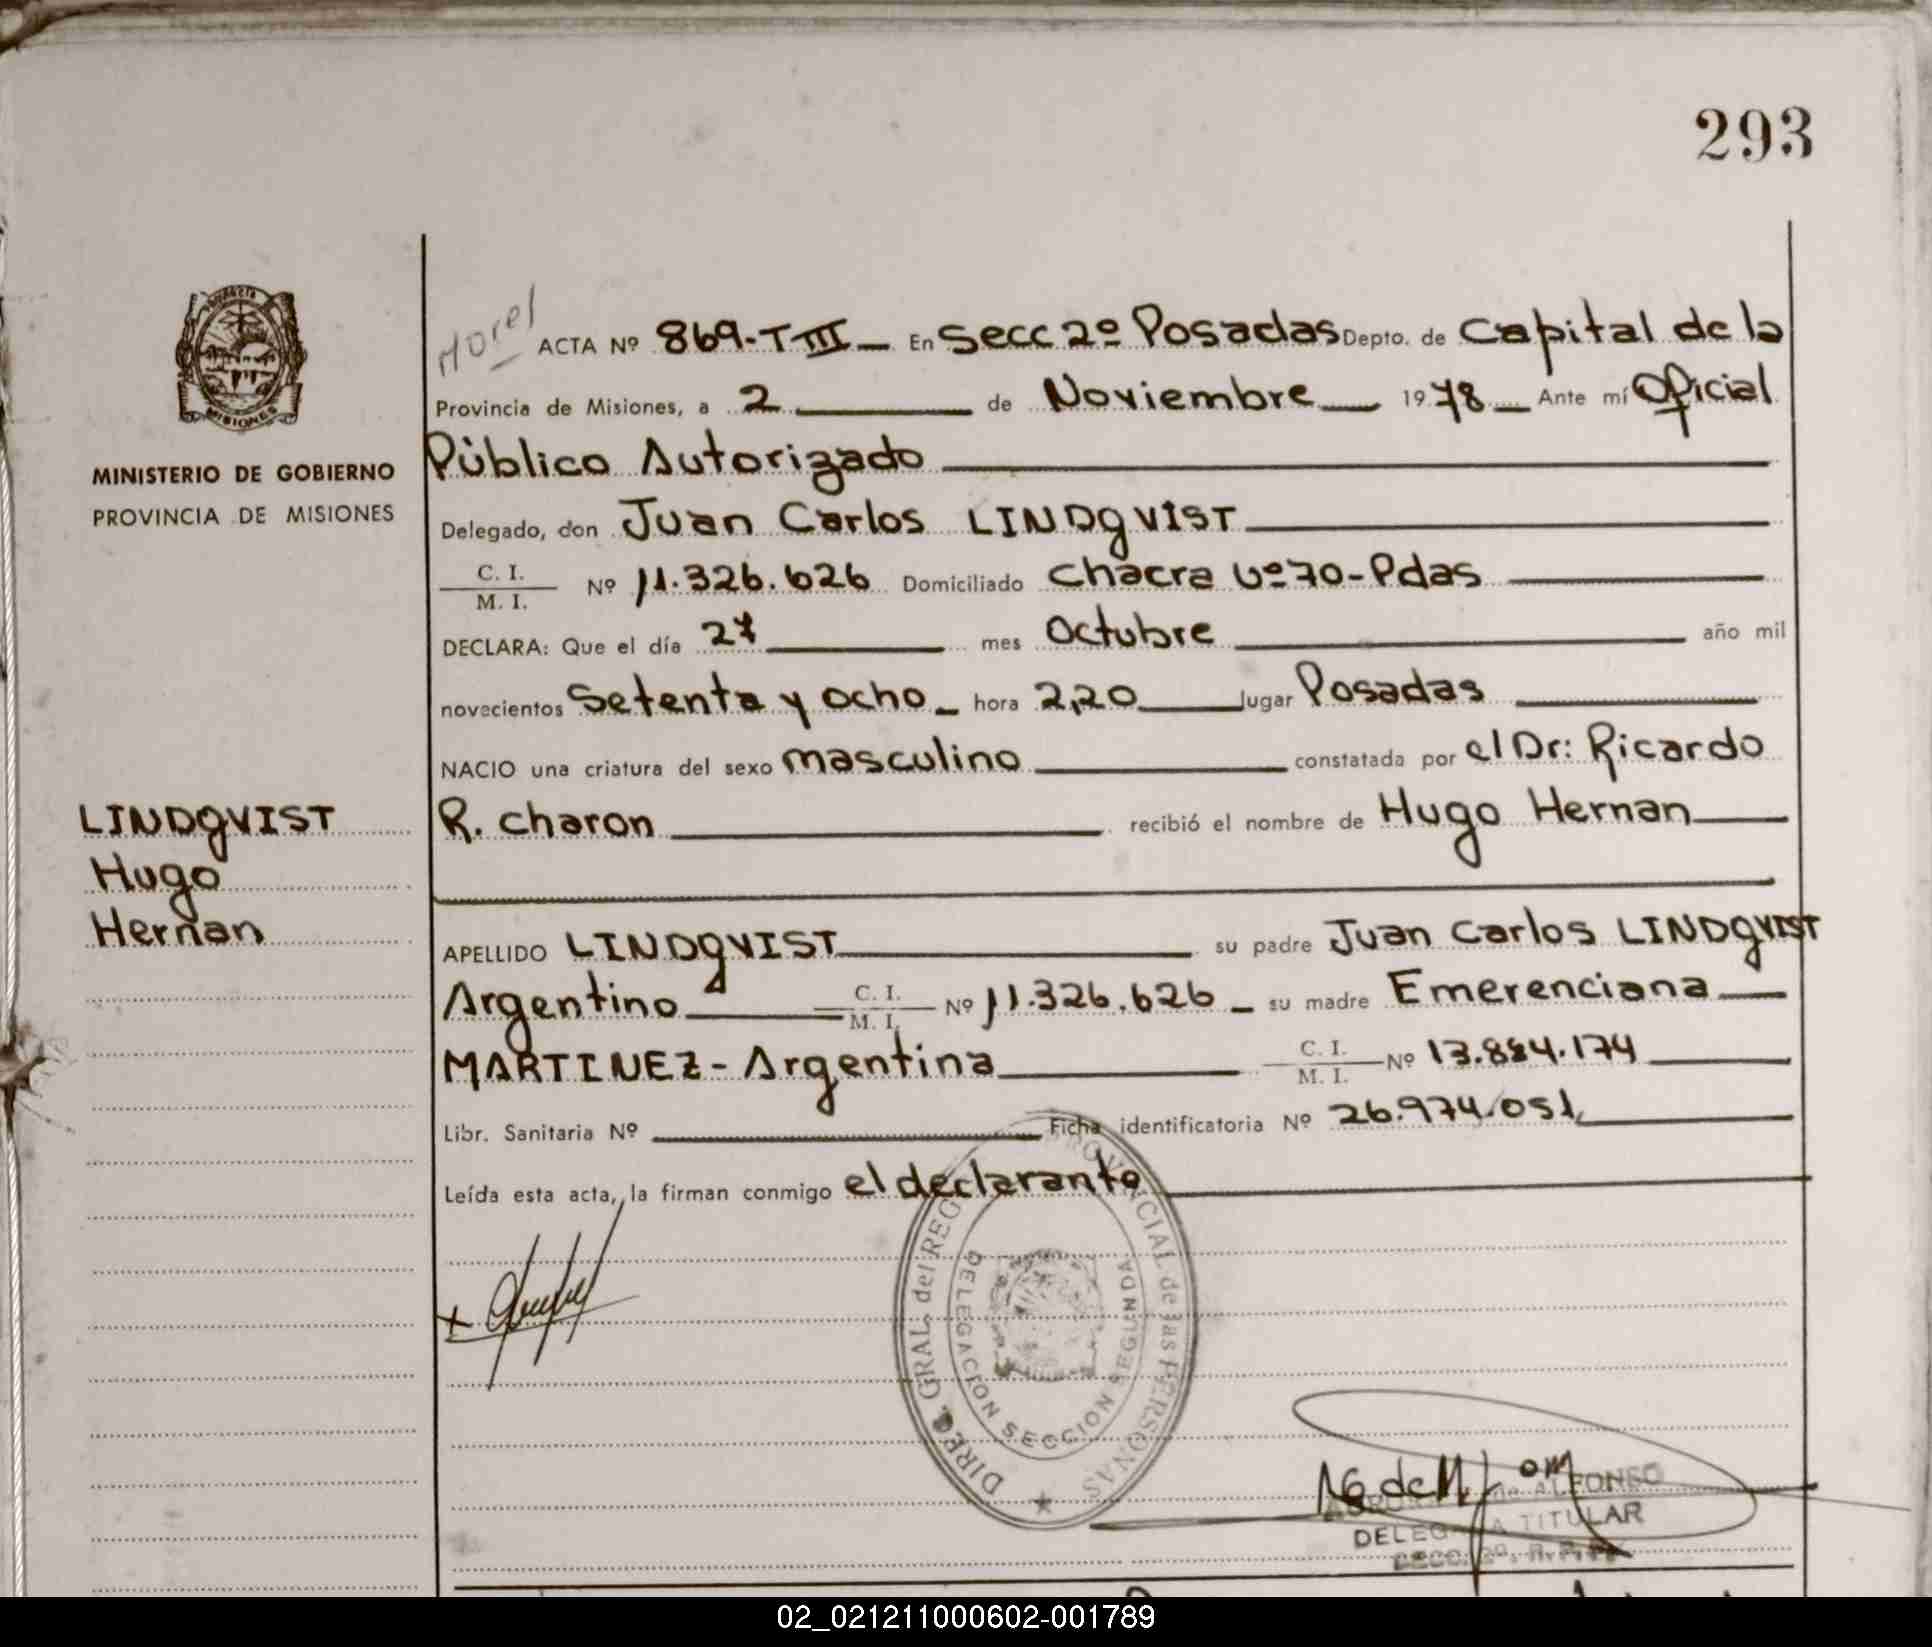 293
ACTA Nº 869-TIII En Secc 2º Posadas Depto. de Capital de la
Provincia de Misiones, a 2 de Noviembre 1978 Ante mí Oficial
MINISTERIO DE GOBIERNO
PROVINCIA DE MISIONES
Público Autorizado
Delegado, don Juan Carlos LINDQVIST
C. I.
M. I. Nº 11.326.626 Domiciliado Chacra Nº 70-Pdas
DECLARA: Que el día 27 mes Octubre año mil
novecientos Setenta y ocho hora 2,20 lugar Posadas
NACIO una criatura del sexo masculino constatada por el Dr: Ricardo
LINDQVIST
Hugo
Hernan
R. Charon recibió el nombre de Hugo Hernan
APELLIDO LINDQVIST su padre Juan Carlos LINDQVIST
Argentino C. I. M. I. Nº 11.326.626 su madre Emerenciana
MARTINEZ - Argentina C. I. M. I. Nº 13.884.174
Libr. Sanitaria Nº Ficha identificatoria Nº 26.974.051
Leída esta acta, la firman conmigo el declarante
DIREC. GRAL. del REG PROVINCIAL de las PERSONAS
DELEGACION SECCION SEGUNDA
ALFONSO
TITULAR
02_021211000602-001789